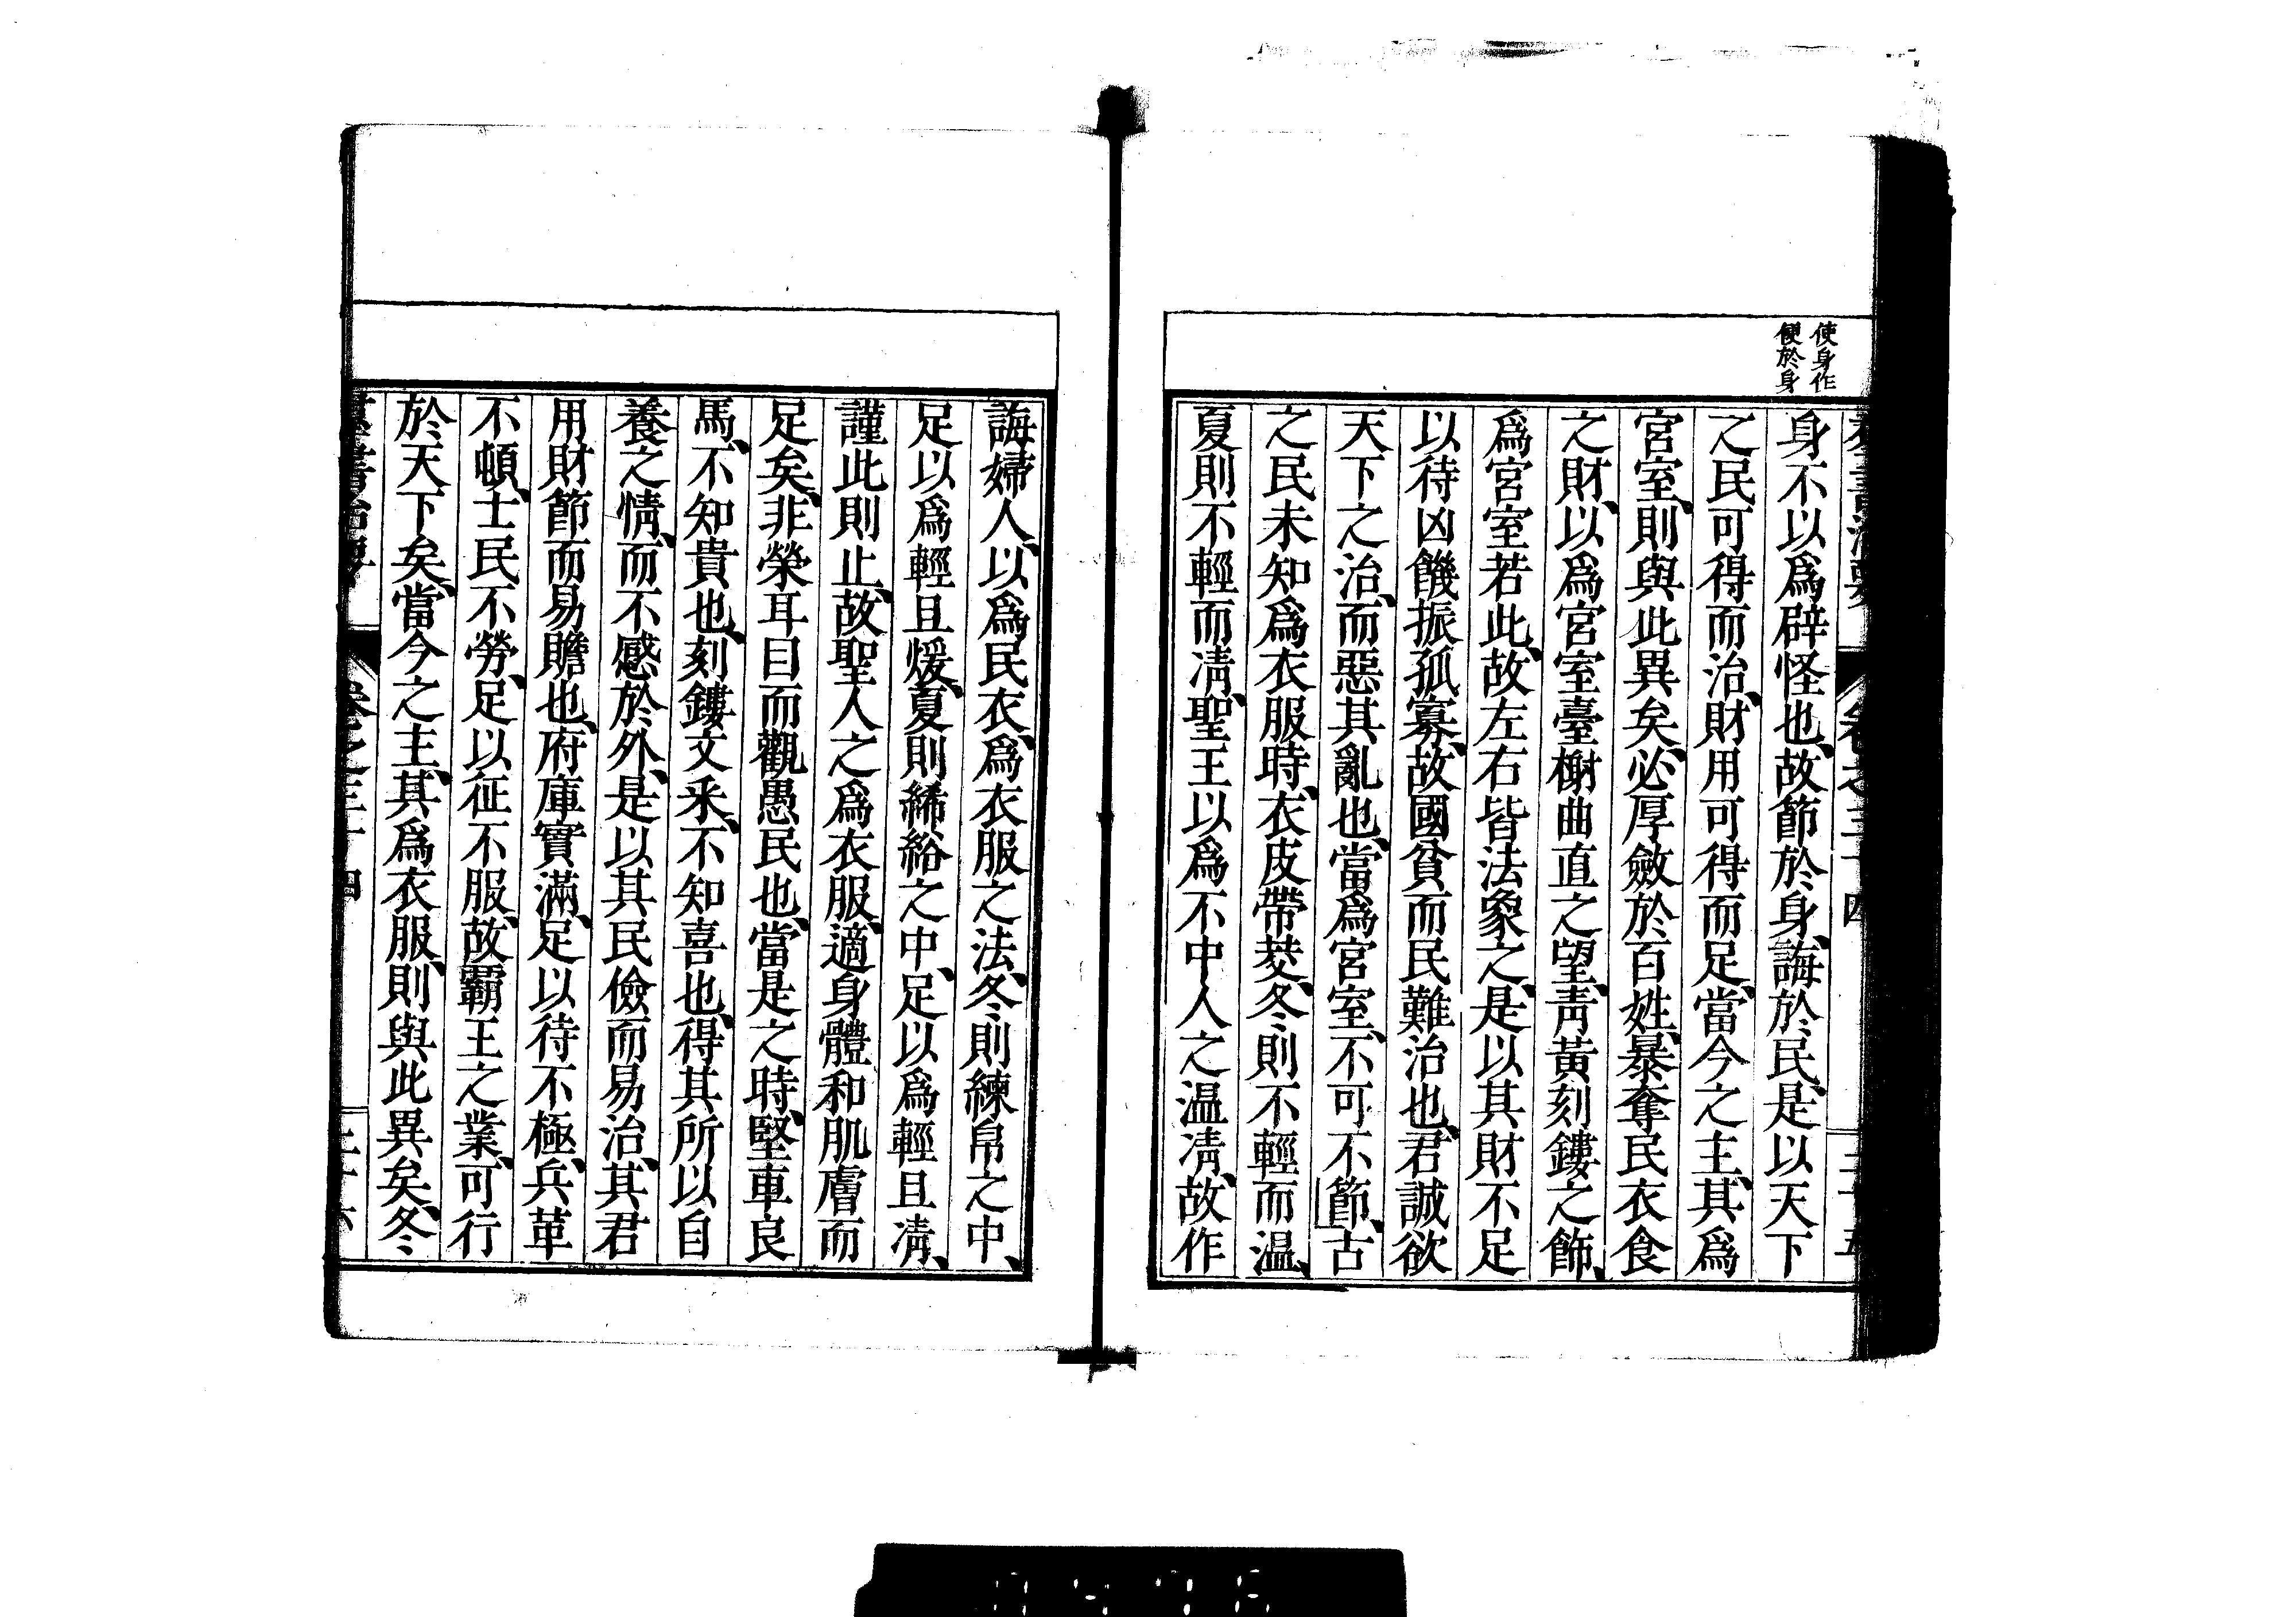 使身作
便於身
群書治要 卷之三十四 三十五
身不以爲辟怪也、故節於身、誨於民、是以天下
之民可得而治、財用可得而足、當今之主、其爲
宮室、則與此異矣、必厚斂於百姓、暴奪民衣食
之財、以爲宮室臺榭曲直之望、靑黃刻鏤之飾、
爲宮室若此、故左右皆法象之、是以其財不足
以待凶饑振孤寡、故國貧而民難治也、君誠欲
天下之治、而惡其亂也、當爲宮室、不可不節、古
之民未知爲衣服時、衣皮帶茭、冬則不輕而温、
夏則不輕而凊、聖王以爲不中人之温凊、故作
誨婦人、以爲民衣、爲衣服之法、冬則練帛之中、
足以爲輕且煖、夏則絺綌之中、足以爲輕且凊、
謹此則止、故聖人之爲衣服、適身體和肌膚而
足矣、非榮耳目而觀愚民也、當是之時、堅車良
馬、不知貴也、刻鏤文采、不知喜也、得其所以自
養之情、而不感於外、是以其民儉而易治、其君
用財節而易贍也、府庫實滿、足以待不極、兵革
不頓、士民不勞、足以征不服、故霸王之業、可行
於天下矣、當今之主、其爲衣服、則與此異矣、冬
群書治要 卷之三十四 三十六